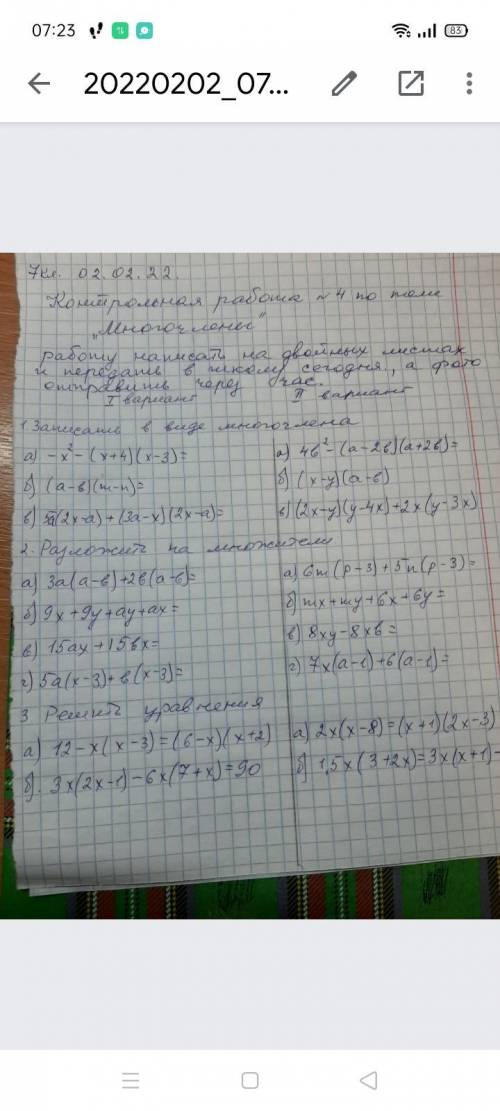 07:23
83
20220202_07...
7кл. 02.02.22.
Контрольная работа №4 по теме
„Многочлены"
Работу написать на двойных листах
и передать в школу сегодня, а фото
отправить через час.
I вариант
II вариант
1. Записать в виде многочлена
а) -x²-(x+4)(x-3)=
б) (а-в)(m-n)=
в) (2x-a)+(3a-x)(2x-a)=
а) 4в²-(а-2в)(а+2в)=
б) (x-y)(a-в)
в) (2x-y)(y-4x)+2x(y-3x)
2. Разложить на множители
а) 3а(а-в)+2в(а-в)=
б) 9x+9y+ay+ax=
в) 15ax+15вx=
г) 5а(x-3)+в(x-3)=
а) 6m(p-3)+5n(p-3)=
б) mx+my+6x+6y=
в) 8xy-8xв=
г) 7x(a-1)+6(a-1)=
3. Решить уравнения
а) 12-x(x-3)=(6-x)(x+2)
б). 3x(2x-1)-6x(7+x)=90
а) 2x(x-8)=(x+1)(2x-3)
б) 1,5x(3+2x)=3x(x+1)-